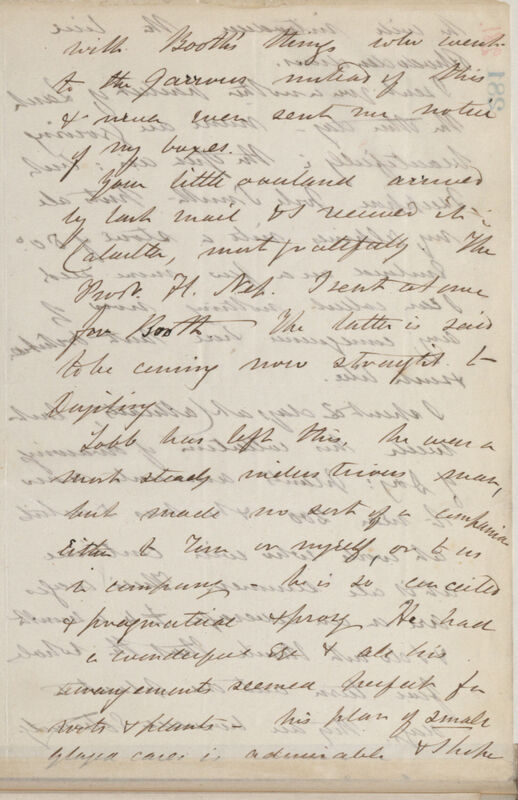 with Booth's things who went
to the Garrows instead of this
& never even sent me notice
of my boxes.
Your little overland arrived
by last mail & I received it in
Calcutta, most gratefully. The
Prosp. Fl. Nep. I sent at once
for Booth The latter is said
to be coming now straight to
Darjiling
Lobb has left this, he was a
most steady industrious man,
but made no sort of a companion
either to Tom or myself, or to us
in company — he is so conceited
& pragmatical & prosy He had
a wonderful eye & all his
arrangements seemed perfect for
roots & plants — his plan of small
glazed cases is admirable & I hope